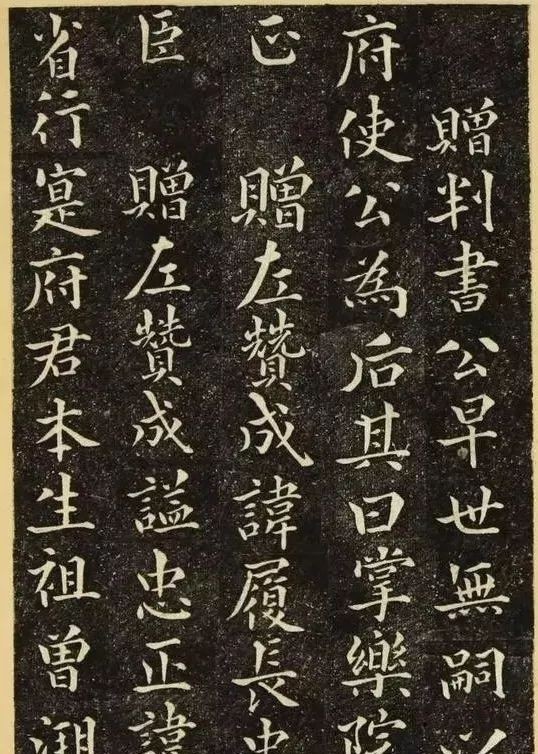 贈判書公早世無嗣
府使公為后其曰掌樂院
正 贈左贊成諱履長
臣 贈左贊成謚忠正諱
省行寔府君本生祖曾